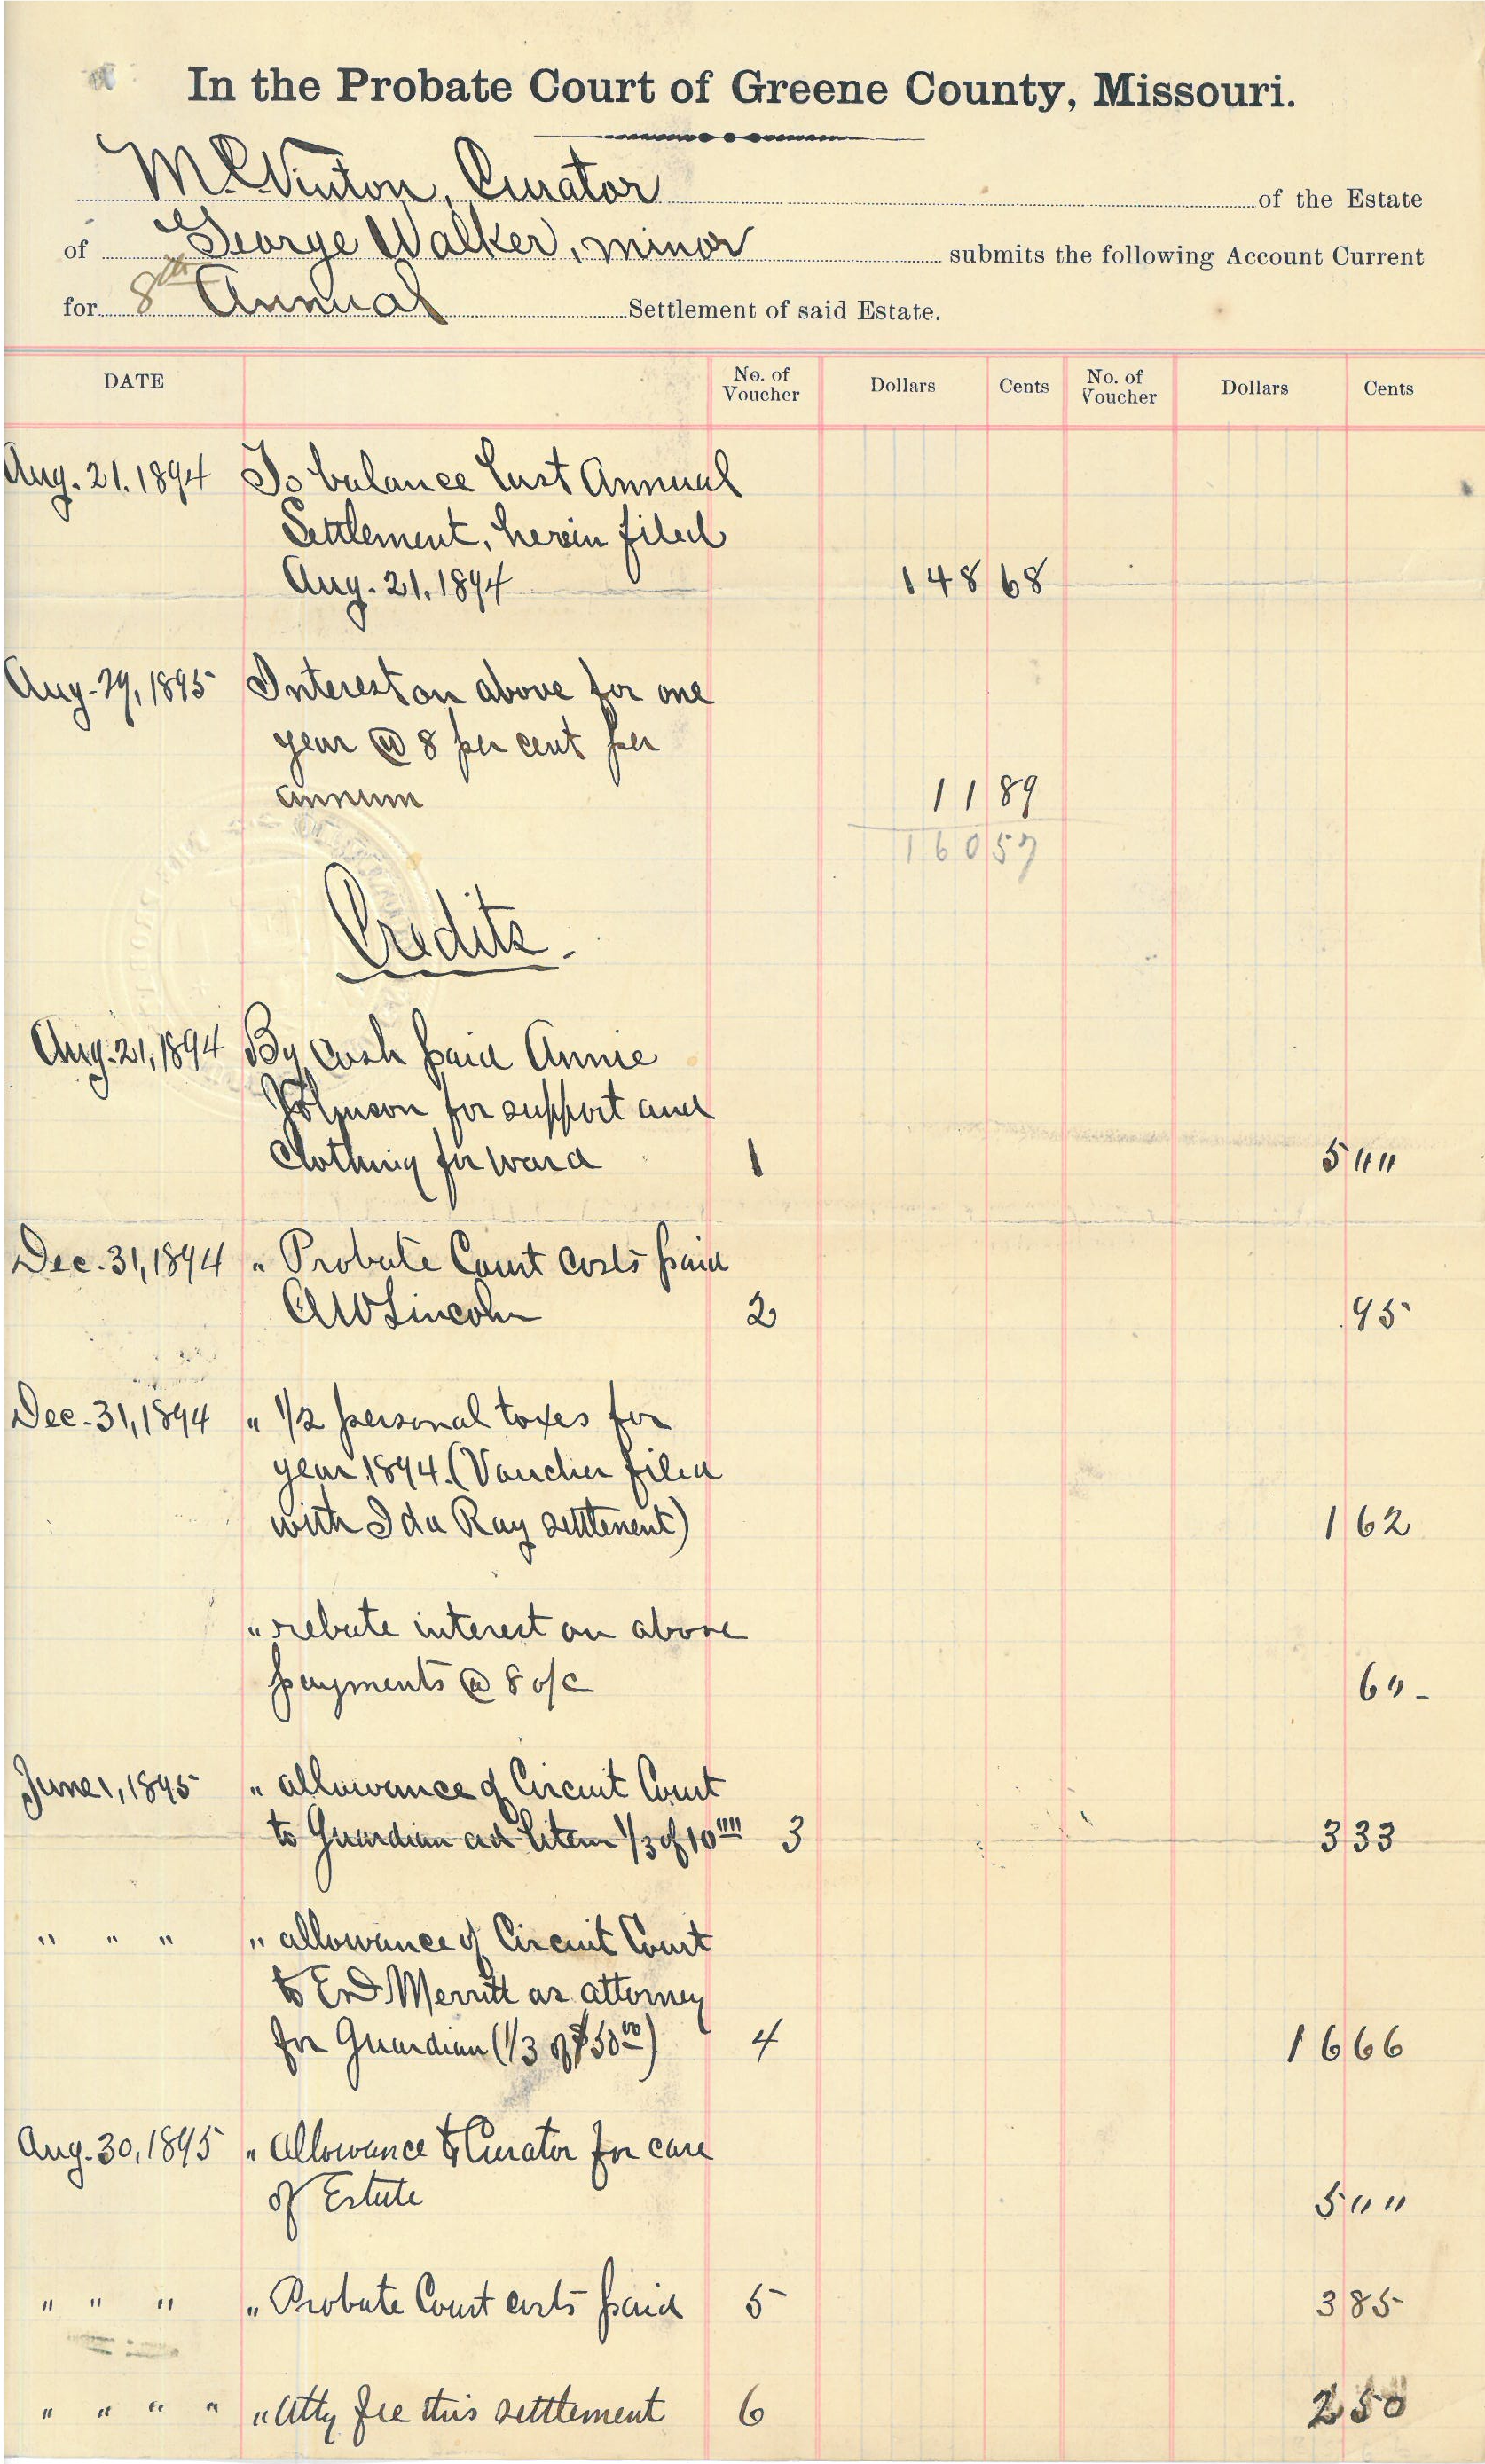 In the Probate Court of Greene County, Missouri.
M. C. Vinton, Curator of the Estate
of George Walker, minor submits the following Account Current
for 8th Annual Settlement of said Estate.
DATE No. of Voucher Dollars Cents No. of Voucher Dollars Cents
Aug. 21. 1894 To balance last Annual
Settlement, herein filed
Aug. 21, 1894 148 68
Aug. 29, 1895 Interest on above for one
year @ 8 per cent per
annum 11 89
160 57
Credits.
Aug. 21, 1894 By cash paid Annie
Johnson for support and
Clothing for ward 1 5 " "
Dec. 31, 1894 " Probate Court costs paid
A W Lincoln 2 .95
Dec. 31, 1894 " 1/2 personal taxes for
year 1894. (Voucher filed
with Ida Ray settlement) 1 62
" rebate interest on above
payments @ 8 o/c 6 " -
June 1, 1895 " allowance of Circuit Court
to Guardian ad litem 1/3 of 10 "" 3 3 33
" " " " allowance of Circuit Court
to Merritt as attorney
for Guardian (1/3 of $50 00) 4 16 66
Aug. 30, 1895 " allowance to Curator for care
of Estate 5 " "
" " " " Probate Court costs paid 5 3 85
" " " " " Atty fee this settlement 6 2 50